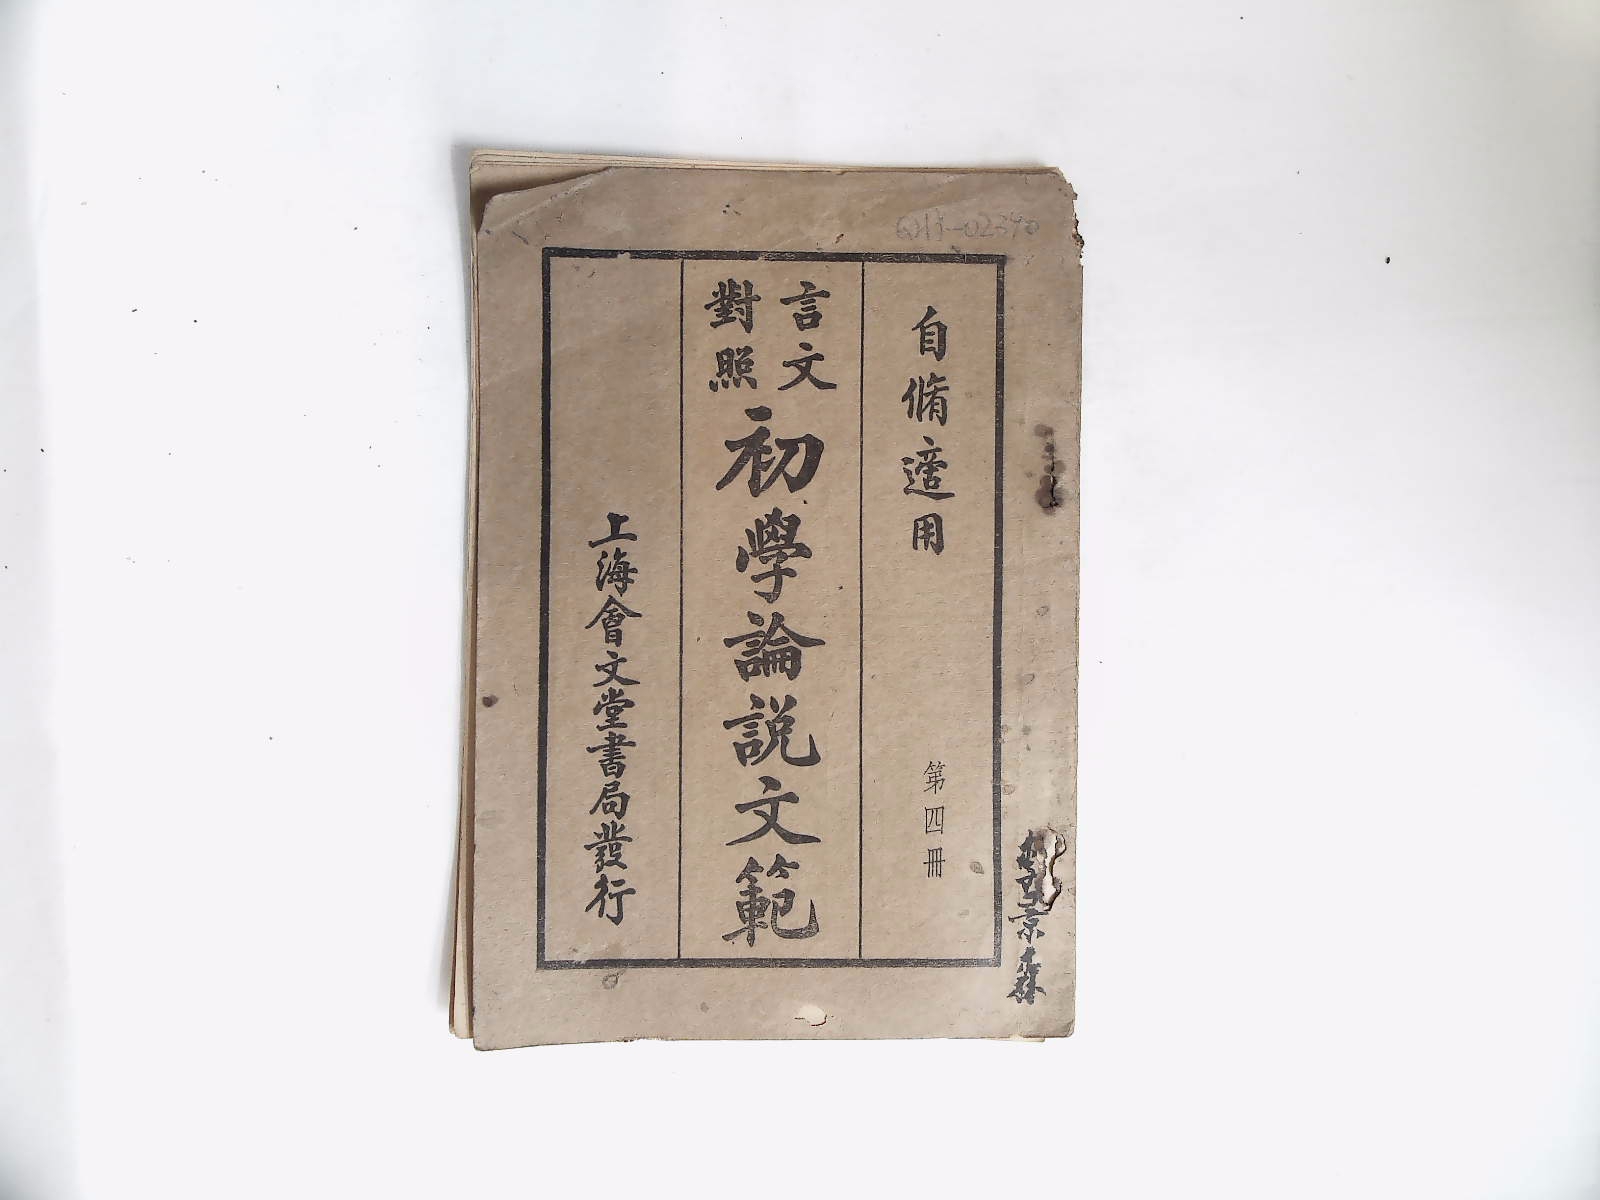 自脩適用
第四冊
言文
對照
初學論説文範
上海會文堂書局發行
京森